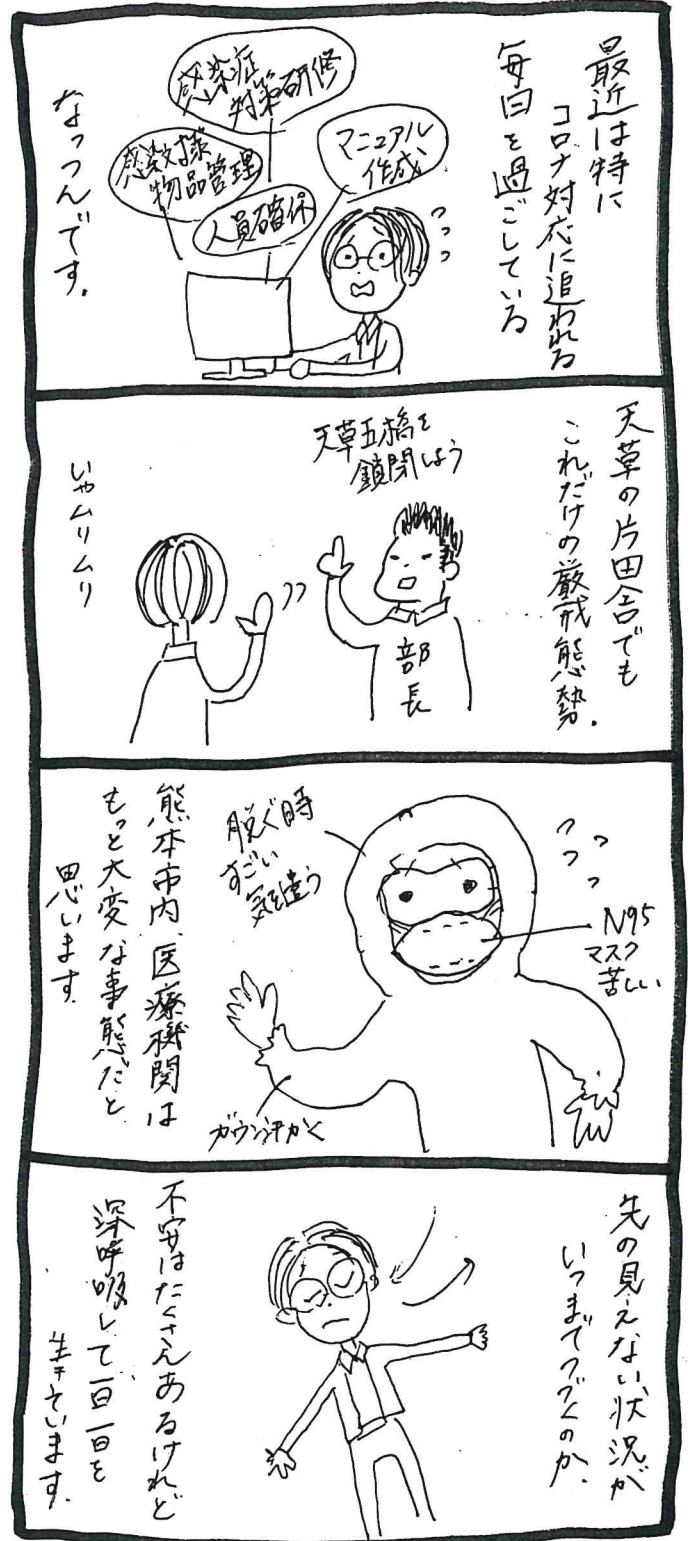 最近は特に
コロナ対応に追われる
毎日を過ごしている
感染症
対策研修
マニュアル
作成
物品管理
人員確保
なっつんです。
天草の片田舎でも
これだけの厳戒態勢.
天草五橋を
鎖閉しよう
部長
いやムリムリ
N95
マスク
苦しい
脱ぐ時
すごい
気を遣う
ガウン汗かく
熊本市内、医療機関は
もっと大変な事態だと
思います
先の見えない状況が
いつまでつづくのか.
不安はたくさんあるけれど
深呼吸して一日一日を
生きています.